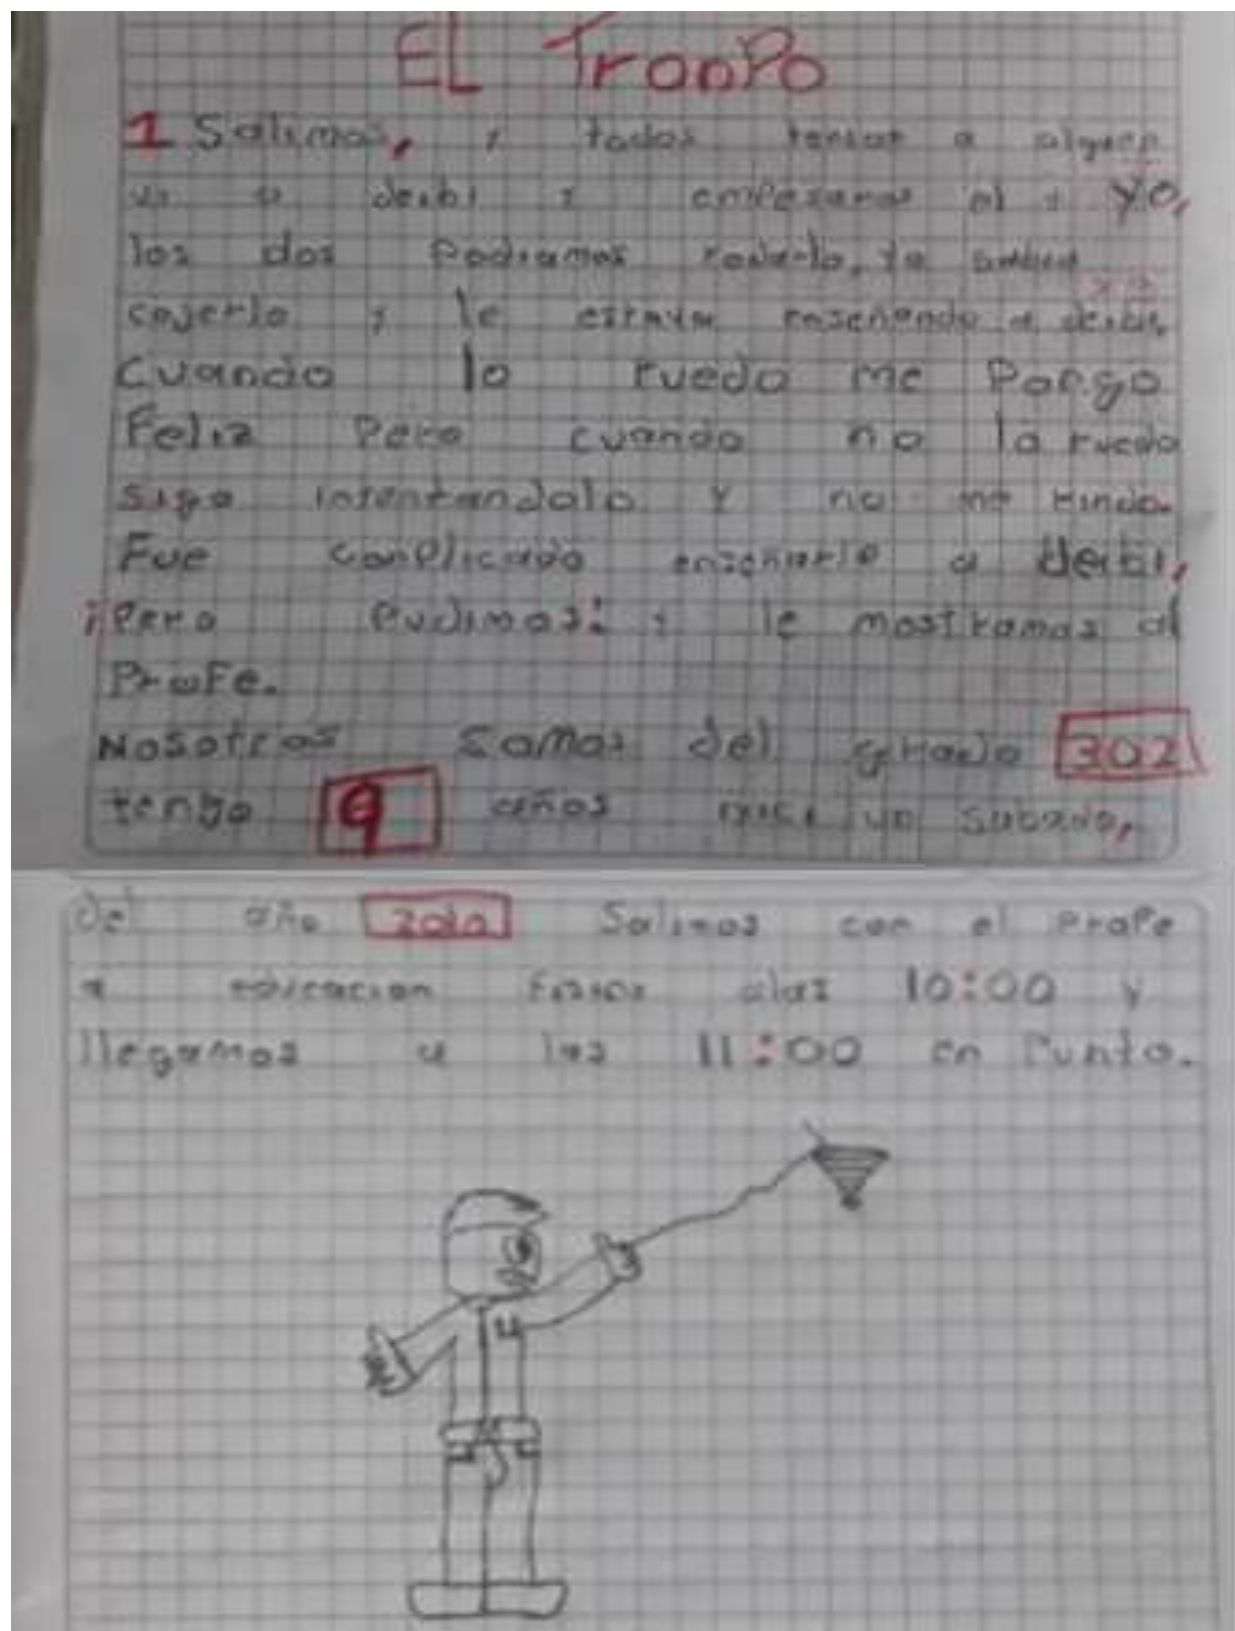 EL TronPo
1 Salimos, y todos tenian a alguen
deibi y empesamos el y yo,
los dos Podiamos rodarlo, yo
cojerlo y le estava enseñando a deibi.
Cuando lo ruedo me Pongo
Feliz Pero cuando no lo ruedo
sigo intentandolo y no me rindo.
Fue conplicado enseñarle a deibi,
¡Pero Pudimos! y le mostramos al
ProFe.
Nosotros somos del grado 302
tengo 9 años naci un sabado,
del año 2010 Salimos con el ProFe
a educacion Fisica alas 10:00 y
llegamos a las 11:00 en Punto.
4